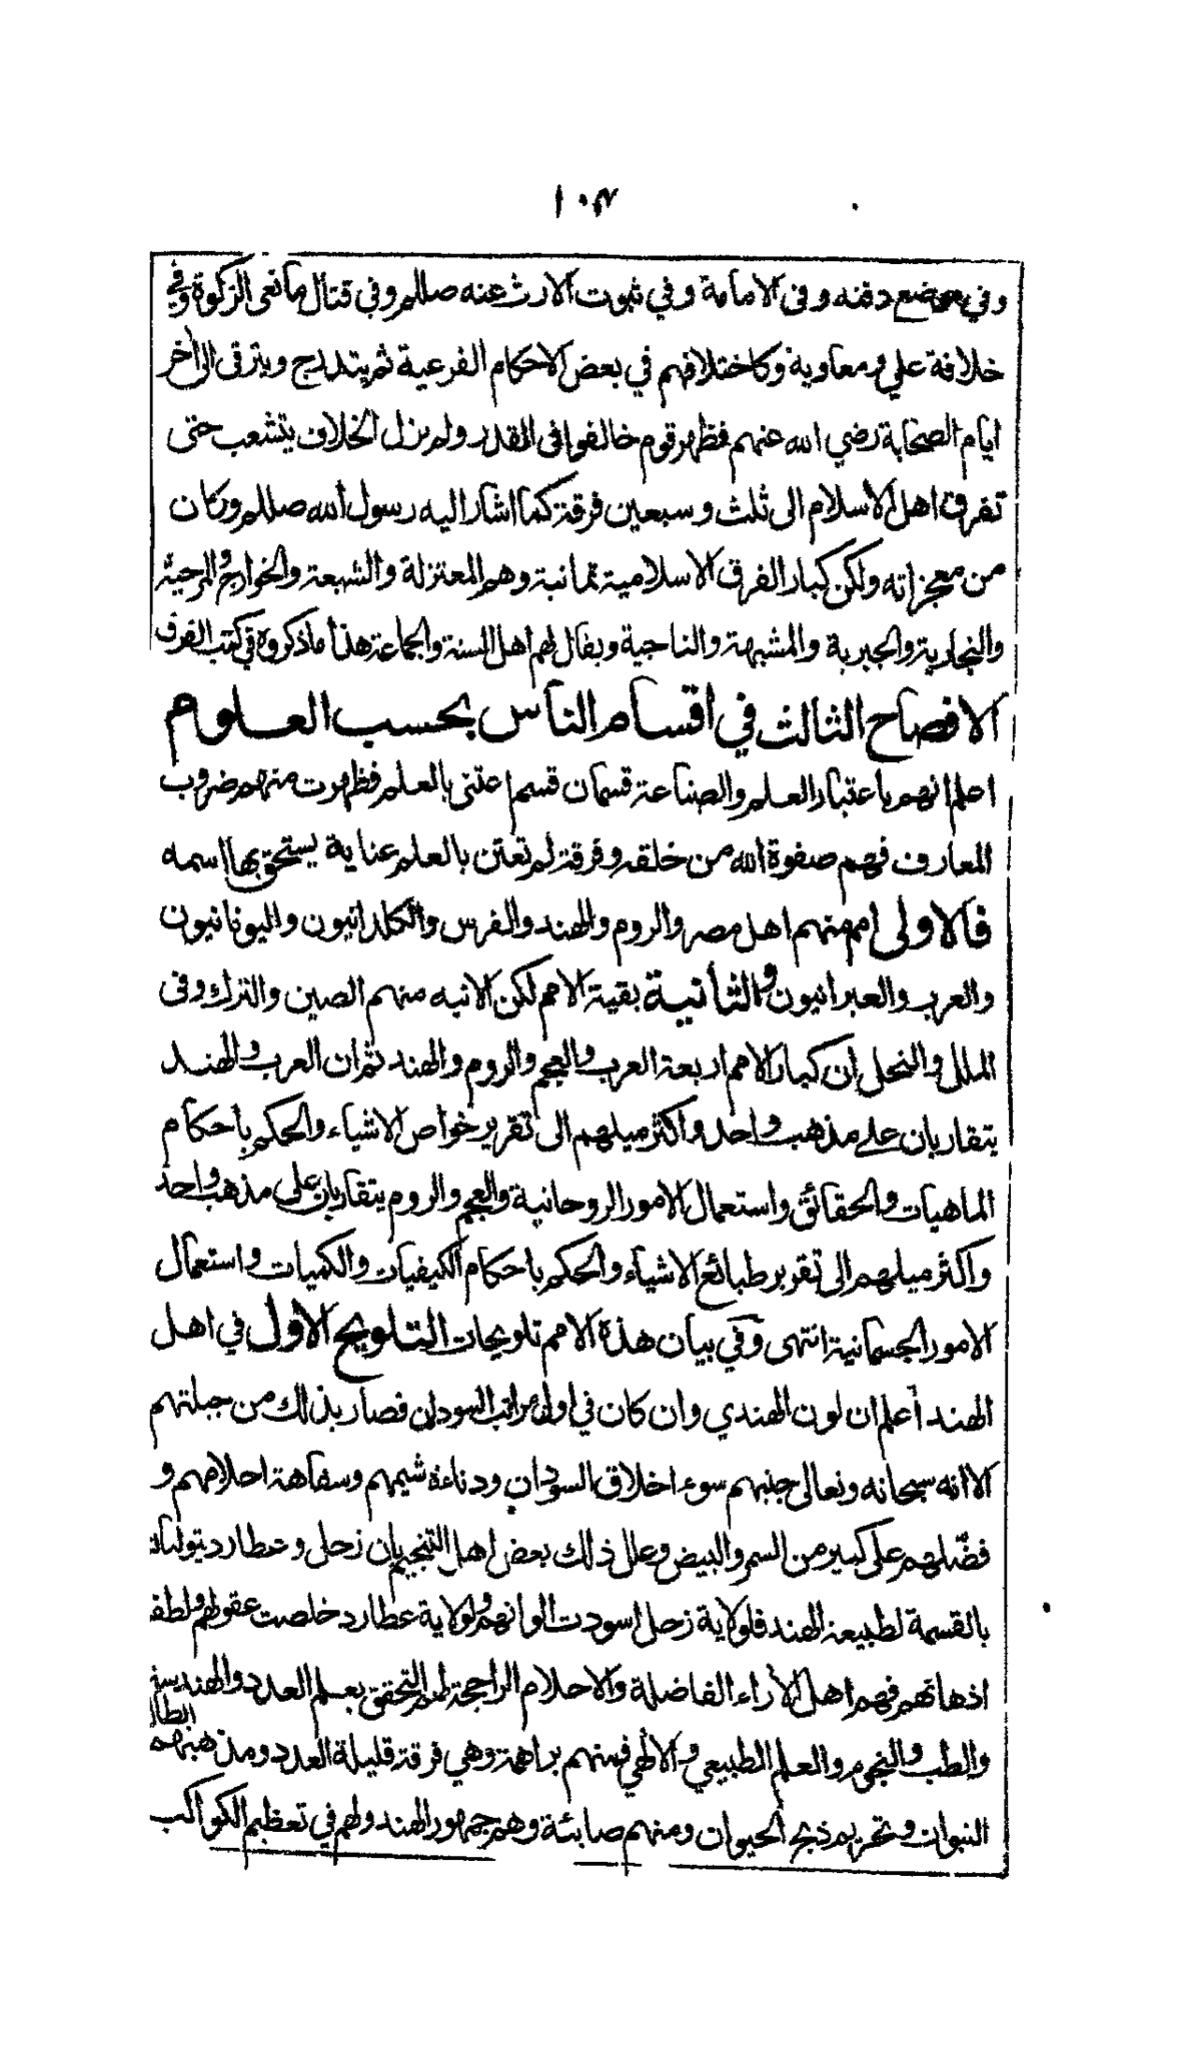 ١٠٧
وفي موضع دفنه وفي الامامة وفي ثبوت الارث عنه صللم وفي قتال مانعي الزكوة وفي
خلافة علي ومعاوية وكاختلافهم في بعض الاحكام الفرعية ثم يتدرج ويترقى الى اخر
ايام الصحابة رضي الله عنهم فظهر قوم خالفوا في القدر ولم يزل الخلاف يتشعب حتى
تفرق اهل الاسلام الى ثلث وسبعين فرقة كما اشار اليه رسول الله صللم وكان
من معجزاته ولكن كبار الفرق الاسلامية ثمانية وهم المعتزلة والشيعة والخوارج والمرجية
والنجارية والجبرية والمشبهة والناجية ويقال لهم اهل السنة والجماعة هذا ما ذكروه في كتب الفرق
الافصاح الثالث في اقسام الناس بحسب العلوم
اعلم انهم باعتبار العلم والصناعة قسمان قسم اعتنى بالعلم فظهرت منهم ضروب
المعارف فهم صفوة الله من خلقه وفرقة لم تعتن بالعلم عناية يستحق بها اسمه
فالاولى امم منهم اهل مصر والروم والهند والفرس والكلدانيون واليونانيون
والعرب والعبرانيون والثانية بقية الامم لكن الانبه منهم الصين والترك وفى
الملل والنحل ان كبار الامم اربعة العرب والعجم والروم والهند ثم ان العرب والهند
يتقاربان على مذهب واحد واكثر ميلهم الى تقرير خواص الاشياء والحكم باحكام
الماهيات والحقائق واستعمال الامور الروحانية والعجم والروم يتقاربان على مذهب واحد
واكثر ميلهم الى تقرير طبائع الاشياء والحكم باحكام الكيفيات والكميات واستعمال
الامور الجسمانية انتهى وفي بيان هذه الامم تلويحات التلويح الاول في اهل
الهند اعلم ان لون الهندي وان كان في اول مراتب السودان فصار بذلك من جبلتهم
الا انه سبحانه وتعالى جنبهم سوء اخلاق السودان ودناءة شيمهم وسفاهة احلامهم و
فضّلهم على كثير من السمر والبيض وعلل ذلك بعض اهل التنجيم بان زحل وعطارد يتوليان
بالقسمة لطبيعة الهند فلولاية زحل اسودت الوانهم ولولاية عطارد خلصت عقولهم ولطفت
اذهانهم فهم اهل الآراء الفاضلة والاحلام الراجحة لهم التحقق بعلم العدد والهندسة
والطب والنجوم والعلم الطبيعي والالهي فمنهم براهمة وهي فرقة قليلة العدد ومذهبهم ابطال
النبوات وتحريم ذبح الحيوان ومنهم صابئة وهم جمهور الهند ولهم في تعظيم الكواكب